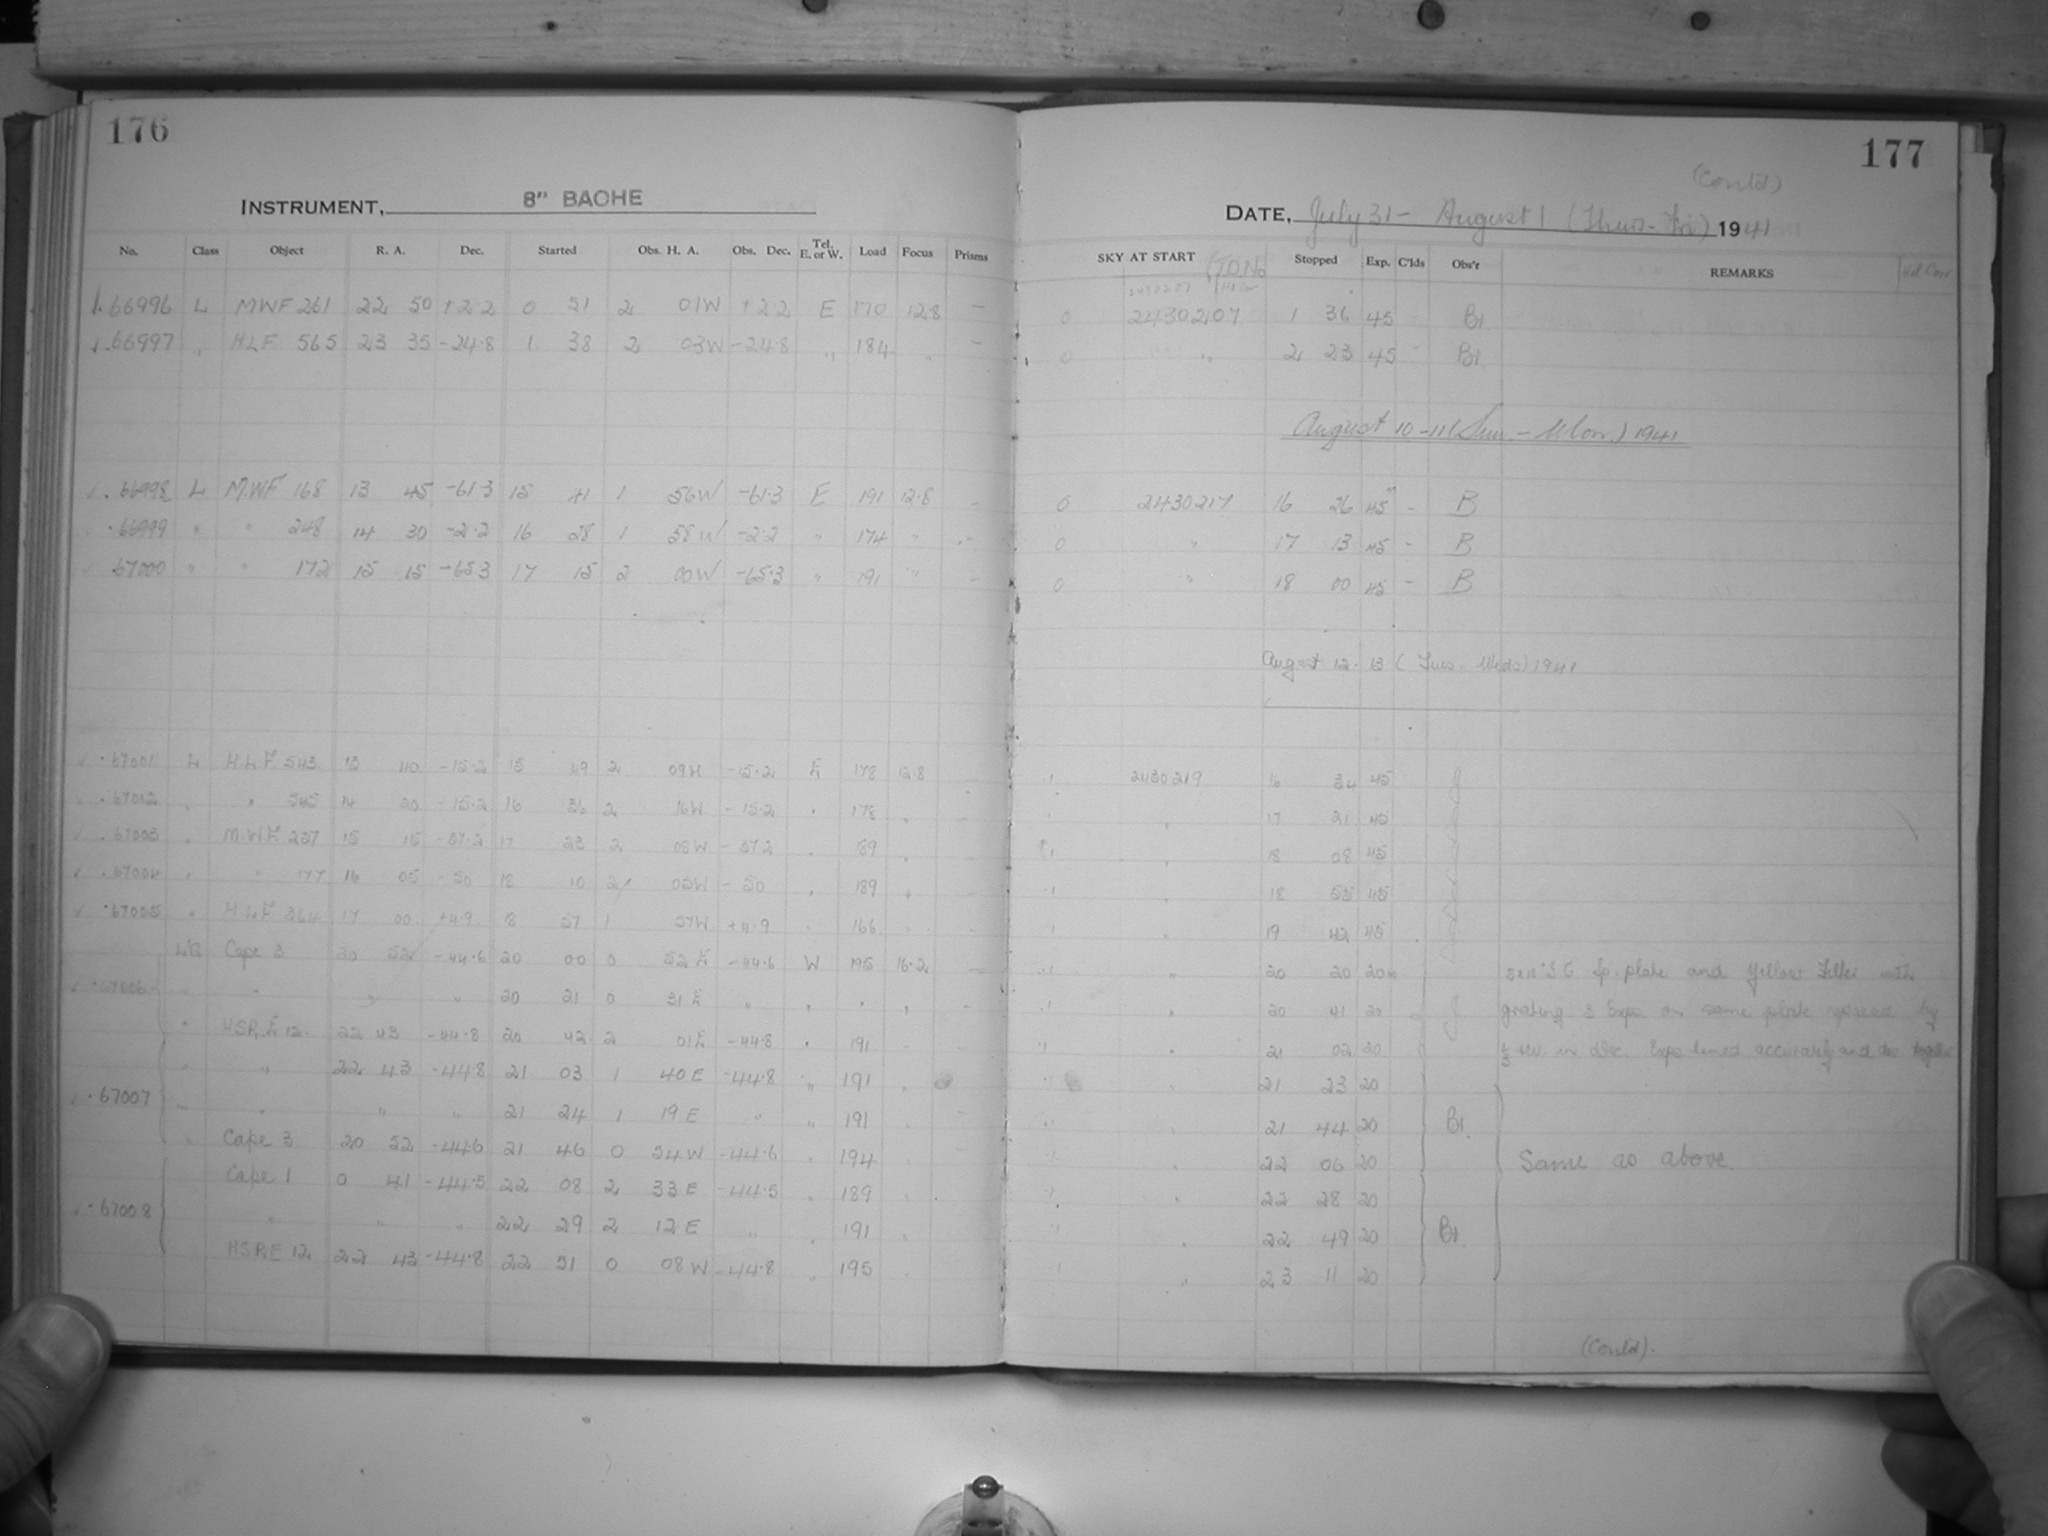 176
INSTRUMENT, 8" BACHE
No. Class Object R. A. Dec. Started Obs. H. A. Obs. Dec. Tel. E. or W. Load Focus Prisms
66996 L MWF 261 22 50 +2.2 0 51 2 01W +2.2 E 170 12.8 -
66997 " HLF 565 23 35 -24.8 1 38 2 03W -24.8 " 184 " -
66998 L M.WF 168 13 45 -61.3 15 41 1 56W -61.3 E 191 12.8 -
66999 " " 248 14 30 -2.2 16 28 1 58W -2.2 " 174 " -
67000 " " 172 15 15 -65.3 17 15 2 00W -65.3 " 191 " -
67001 L H.L.F. 543 13 40 -15.2 15 49 2 09W -15.2 E 178 12.8
67002 " " 545 14 20 -15.2 16 36 2 16W -15.2 " 178 "
67003 " M.W.F. 15 15 17 23 2 08W 189 "
67004 " " 177 16 05 -50 18 10 2 05W -50 " 189 "
67005 " HLF 364 17 00 +4.9 18 57 1 57W +4.9 166
Cape 3 20 52 -44.6 20 00 0 52 E -44.6 W 195 16.2 -
67006 " " " " 20 21 0 31 E " " " "
" HSR.E 12 22 43 -44.8 20 42 2 01E -44.8 " 191
" " 22 43 -44.8 21 03 1 40E -44.8 " 191 "
67007 " " " " 21 24 1 19E " " 191
" Cape 3 20 52 -44.6 21 46 0 54W -44.6 " 194
Cape 1 0 41 -44.5 22 08 2 33E -44.5 " 189
67008 " " " 22 29 2 12E " " 191
HSR.E 12 22 43 -44.8 22 51 0 08W -44.8 " 195
177
(Contd)
DATE, July 31 - August 1 (Thurs - Fri) 1941
SKY AT START Stopped Exp. C'lds Obs'r REMARKS
0 2430207 1 36 45 Br.
0 " 2 23 45 Br.
August 10-11 (Sun. - Mon.) 1941
0 2430217 16 26 45 - B
0 " 17 13 45 - B
0 " 18 00 45 - B
August 12-13 (Tues. - Weds) 1941
2430219 16 34 45
" 17 21 45
" 18 08 45
" 18 55 45
" 19 42 45
" 20 20 20 plate and Yellow Filter with
" 20 41 20 grating 3 Exps on same plate spread by
" 21 02 20 in dec. Exps timed accurately and together
" 21 23 20
" 21 44 20 Br.
" 22 06 20 Same as above.
" 22 28 20
" 22 49 20 Br.
" 23 11 20
(Contd).